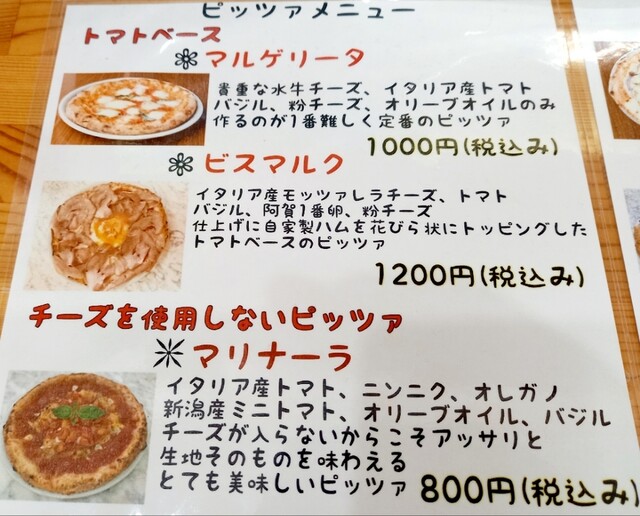 ピッツァメニュー
トマトベース
マルゲリータ
貴重な水牛チーズ、イタリア産トマト
バジル、粉チーズ、オリーブオイルのみ
作るのが1番難しく定番のピッツァ
1000円(税込み)
ビスマルク
イタリア産モッツァレラチーズ、トマト
バジル、阿賀1番卵、粉チーズ
仕上げに自家製ハムを花びら状にトッピングした
トマトベースのピッツァ
1200円(税込み)
チーズを使用しないピッツァ
マリナーラ
イタリア産トマト、ニンニク、オレガノ
新潟産ミニトマト、オリーブオイル、バジル
チーズが入らないからこそアッサリと
生地そのものを味わえる
とても美味しいピッツァ 800円(税込み)